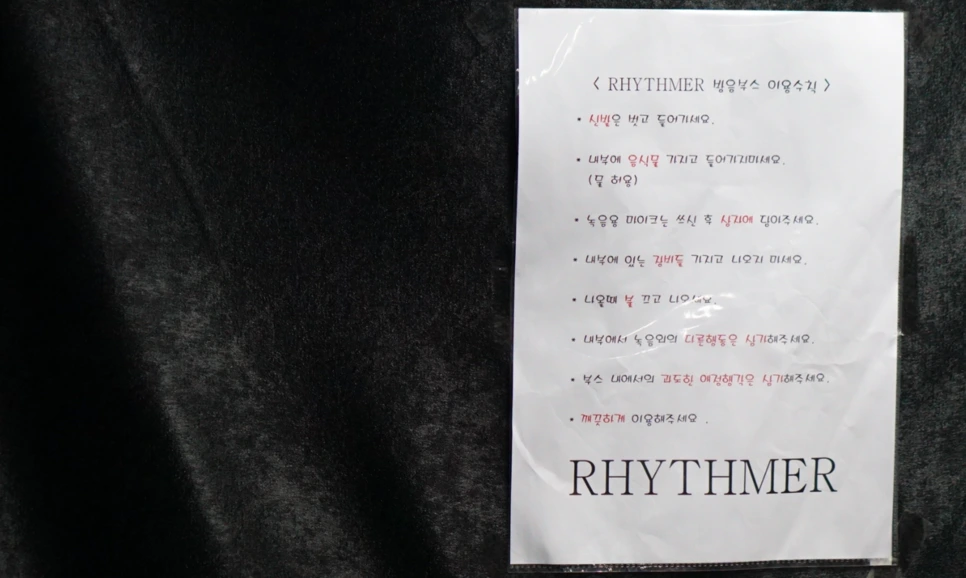 < RHYTHMER 방음부스 이용수칙 >
• 신발은 벗고 들어가세요.
• 내부에 음식물 가지고 들어가지마세요.
(물 허용)
• 녹음용 마이크는 쓰신 후 상자에 담아주세요.
• 내부에 있는 장비들 가지고 나오지 마세요.
• 나올때 불 끄고 나오세요.
• 내부에서 녹음외의 다른행동은 삼가해주세요.
• 부스 내에서의 과도한 애정행각은 삼가해주세요.
• 깨끗하게 이용해주세요 .
RHYTHMER